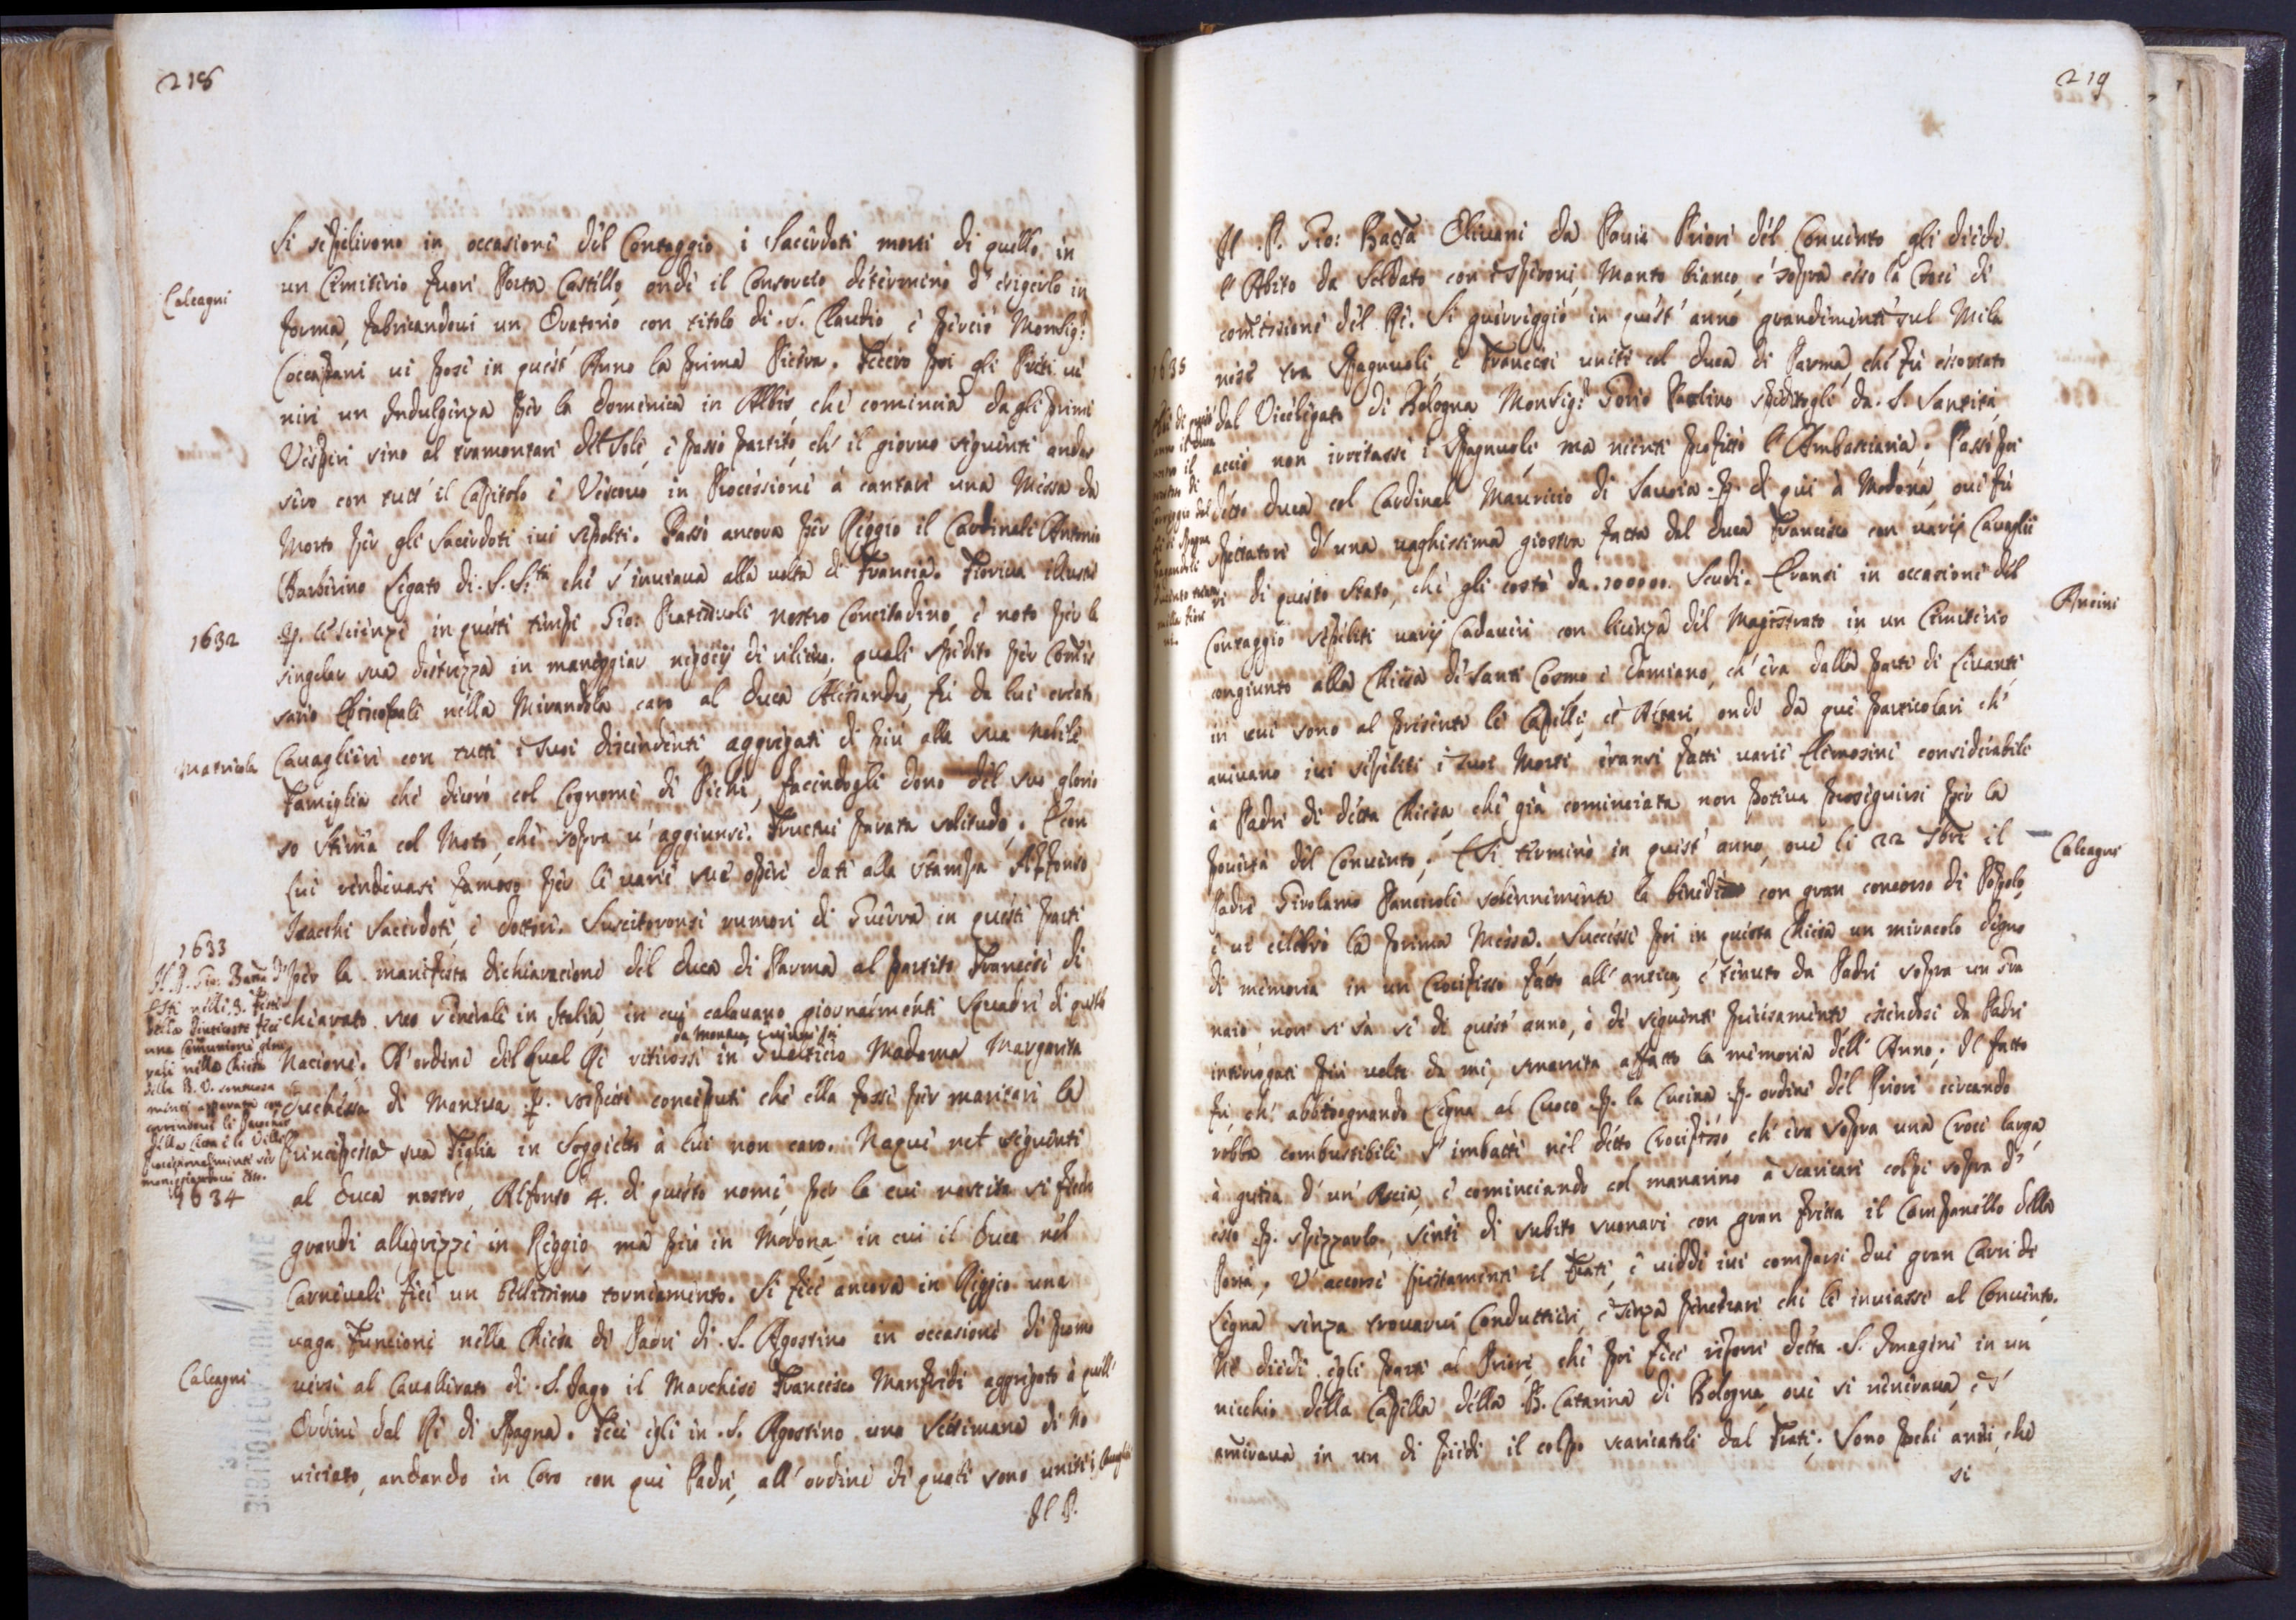 218
Si sepelirono in occasione del Contaggio i Sacerdoti morti di quello in
Calcagni
un Cimiterio fuori Porta Castello, onde il Consorcio determinò d'erigerlo in
forma, fabricandoui un Oratorio con titolo di S. Claudio, e perciò Monsig:
Coccapani ui pose in quest' Anno la prima Pietra. Fecero poi gli Preti ue
nire un Indulgenza per la Domenica in Albis, che comincia da gli primi
Vesperi sino al tramontare del Sole, e passò partito, che il giorno seguente andas
sero con tutt' il Capitolo e Vescouo in Processione à cantare una Messa da
Morto per gli Sacerdoti iui sepolti. Passò ancora per Reggio il Cardinale Antonio
Barberino Legato di S. S.tà che s'inuiaua alla uolta di Francia. Fioriua illustre
1632
p. le Scienze in questi tempi Gio: nostro Concitadino, e noto per la
singolar sua destrezza in maneggiar negocij di rilieuo. quale spedito per Comes
sario Episcopale nella Mirandola caro al Duca Alessandro, fù da lui creato
Matricola
Caualiere con tutti i suoi discendenti, aggregati di più alla sua nobile
Famiglia che decorò col Cognome di Pichi, facendogli dono del suo glorio
so Stema col Moto, che sopra u' aggiunse. Fructus parata solitudo. E con
lui rendeuasi famoso per le uarie sue opere date alla stampa Alfonso
Isacchi Sacerdote, e Dottore. Suscitoronsi rumori di Guerra in queste parti
1633
per la manifesta dichiaracione del Duca di Parma al partito Francese di
chiarato suo Generale in Italia, in cui calauano giornalmente Squadre di quella
da Mantoua,
Nacione. D' ordine del qual Rè ritirossi in Madama Margarita
Duchessa di Mantua p. sospetti conceputi che ella fosse per maritare la
Principessa sua Figlia in Soggietto à lui non caro. Naque nel seguente
1634
al Duca nostro, Alfonso 4. di questo nome, per la cui nascita si fecero
grandi allegrezze in Reggio, mà più in Modona, in cui il Duca nel
Carneuale fece un bellissimo torniamento. Si fece ancora in Reggio una
uaga Funcione nella Chiesa di Padri di S. Agostino in occasione di promo
Calcagni
uersi al Cauallerato di S. Iago il Marchese Francesco Manfredi aggregato à quell'
Ordine dal Rè di Spagna. Fece egli in S. Agostino una Settimana di No
uiciato, andando in Coro con que Padri, all' ordine di quali sono uniti i
Il P.
219
Il P. Gio: Batta Oliuani da Pauia Priore del Conuento gli diede
l' Abito da Soldato con i speroni, Manto bianco, e sopra esso la Croce di
comessione del Rè. Si guerreggiò in quest' anno grandemente sul Mila
1635
nese tra Spagnuoli, e Francesi uniti col Duca di Parma, che fù essortato
dal Vicelegato di Bologna Monsig: Paolino speditogli da S. Santità,
acciò non irritasse i Spagnuoli, ma niente profittò l' Ambasciaria. Passò poi
detto Duca col Cardinal Mauricio di Sauoia p. di qui à Modona, oue fù
spettatore d' una uaghissima giostra fatta dal Duca Francesco con uarij Cauaglie
ri di questo Stato, che gli costò da 100000. Scudi. Eransi in occasione del
Ancini
Contaggio sepeliti uarij Cadaueri con licenza del Magistrato in un Cimiterio
congiunto alla Chiesa di Santi Cosmo e Damiano, ch' era dalla parte di Leuante,
in cui sono al presente le Capelle, et Altari, onde da que particolari ch'
aueuano iui sepeliti i suoi Morti eransi fatte uarie Elemosine considerabili
à Padri di detta Chiesa, che già cominciata non poteua proseguirsi per la
pouertà del Conuento; E si terminò in quest' anno, oue li 22 7bre il
Calcagni
Padre Girolamo Panciroli solennemente la benedì con gran concorso di Popolo,
e ui celebrò la prima Messa. Successe poi in questa Chiesa un miracolo degno
di memoria in un Crocifisso fatto all' antica, e tenuto da Padri sopra un Gra
naio, non si sà se di quest' anno, ò di seguente precisamente, essendosi da Padri
interrogati più uolte da me, smarrita affatto la memoria dell' Anno; Il fatto
fù, ch' abbisognando Legna al Cuoco p. la Cucina p. ordine del Priore cercando
robba combustibile s' imbattè nel detto Crocifisso, ch' era sopra una Croce larga,
à guisa d' un' Ascia, e cominciando col manarino à scaricare colpi sopra d'
esso p. spezzarlo, sentì di subito suonare con gran fretta il Campanello della
Porta, V' accorse prestamente il Frate, e uidde iui comparsi due gran Carri di
Legna senza trouarui Conduttieri, e senza penetrare chi le inuiasse al Conuento.
Ne diede egli parte al Priore, che poi fece riporre detta S. Imagine in un
nicchio della Capella della B. Catarina di Bologna, oue si ueneraua, e s'
amiraua in un di piedi il colpo scaricatoli dal Frate. Sono pochi anni, che
si